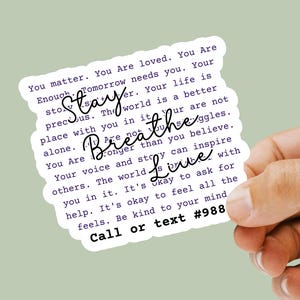 You matter. You are loved. You Are
Enough. Tomorrow needs you. Your
Stay
over. Your life is
precious. The world is a better
place with you in it. are not
Breathe
alone. not
You Are stronger than you believe.
Your voice and story can inspire
Live
others. The world is with
you in it. It's okay to ask for
help. It's okay to feel all the
feels. Be kind to your mind
Call or text #988